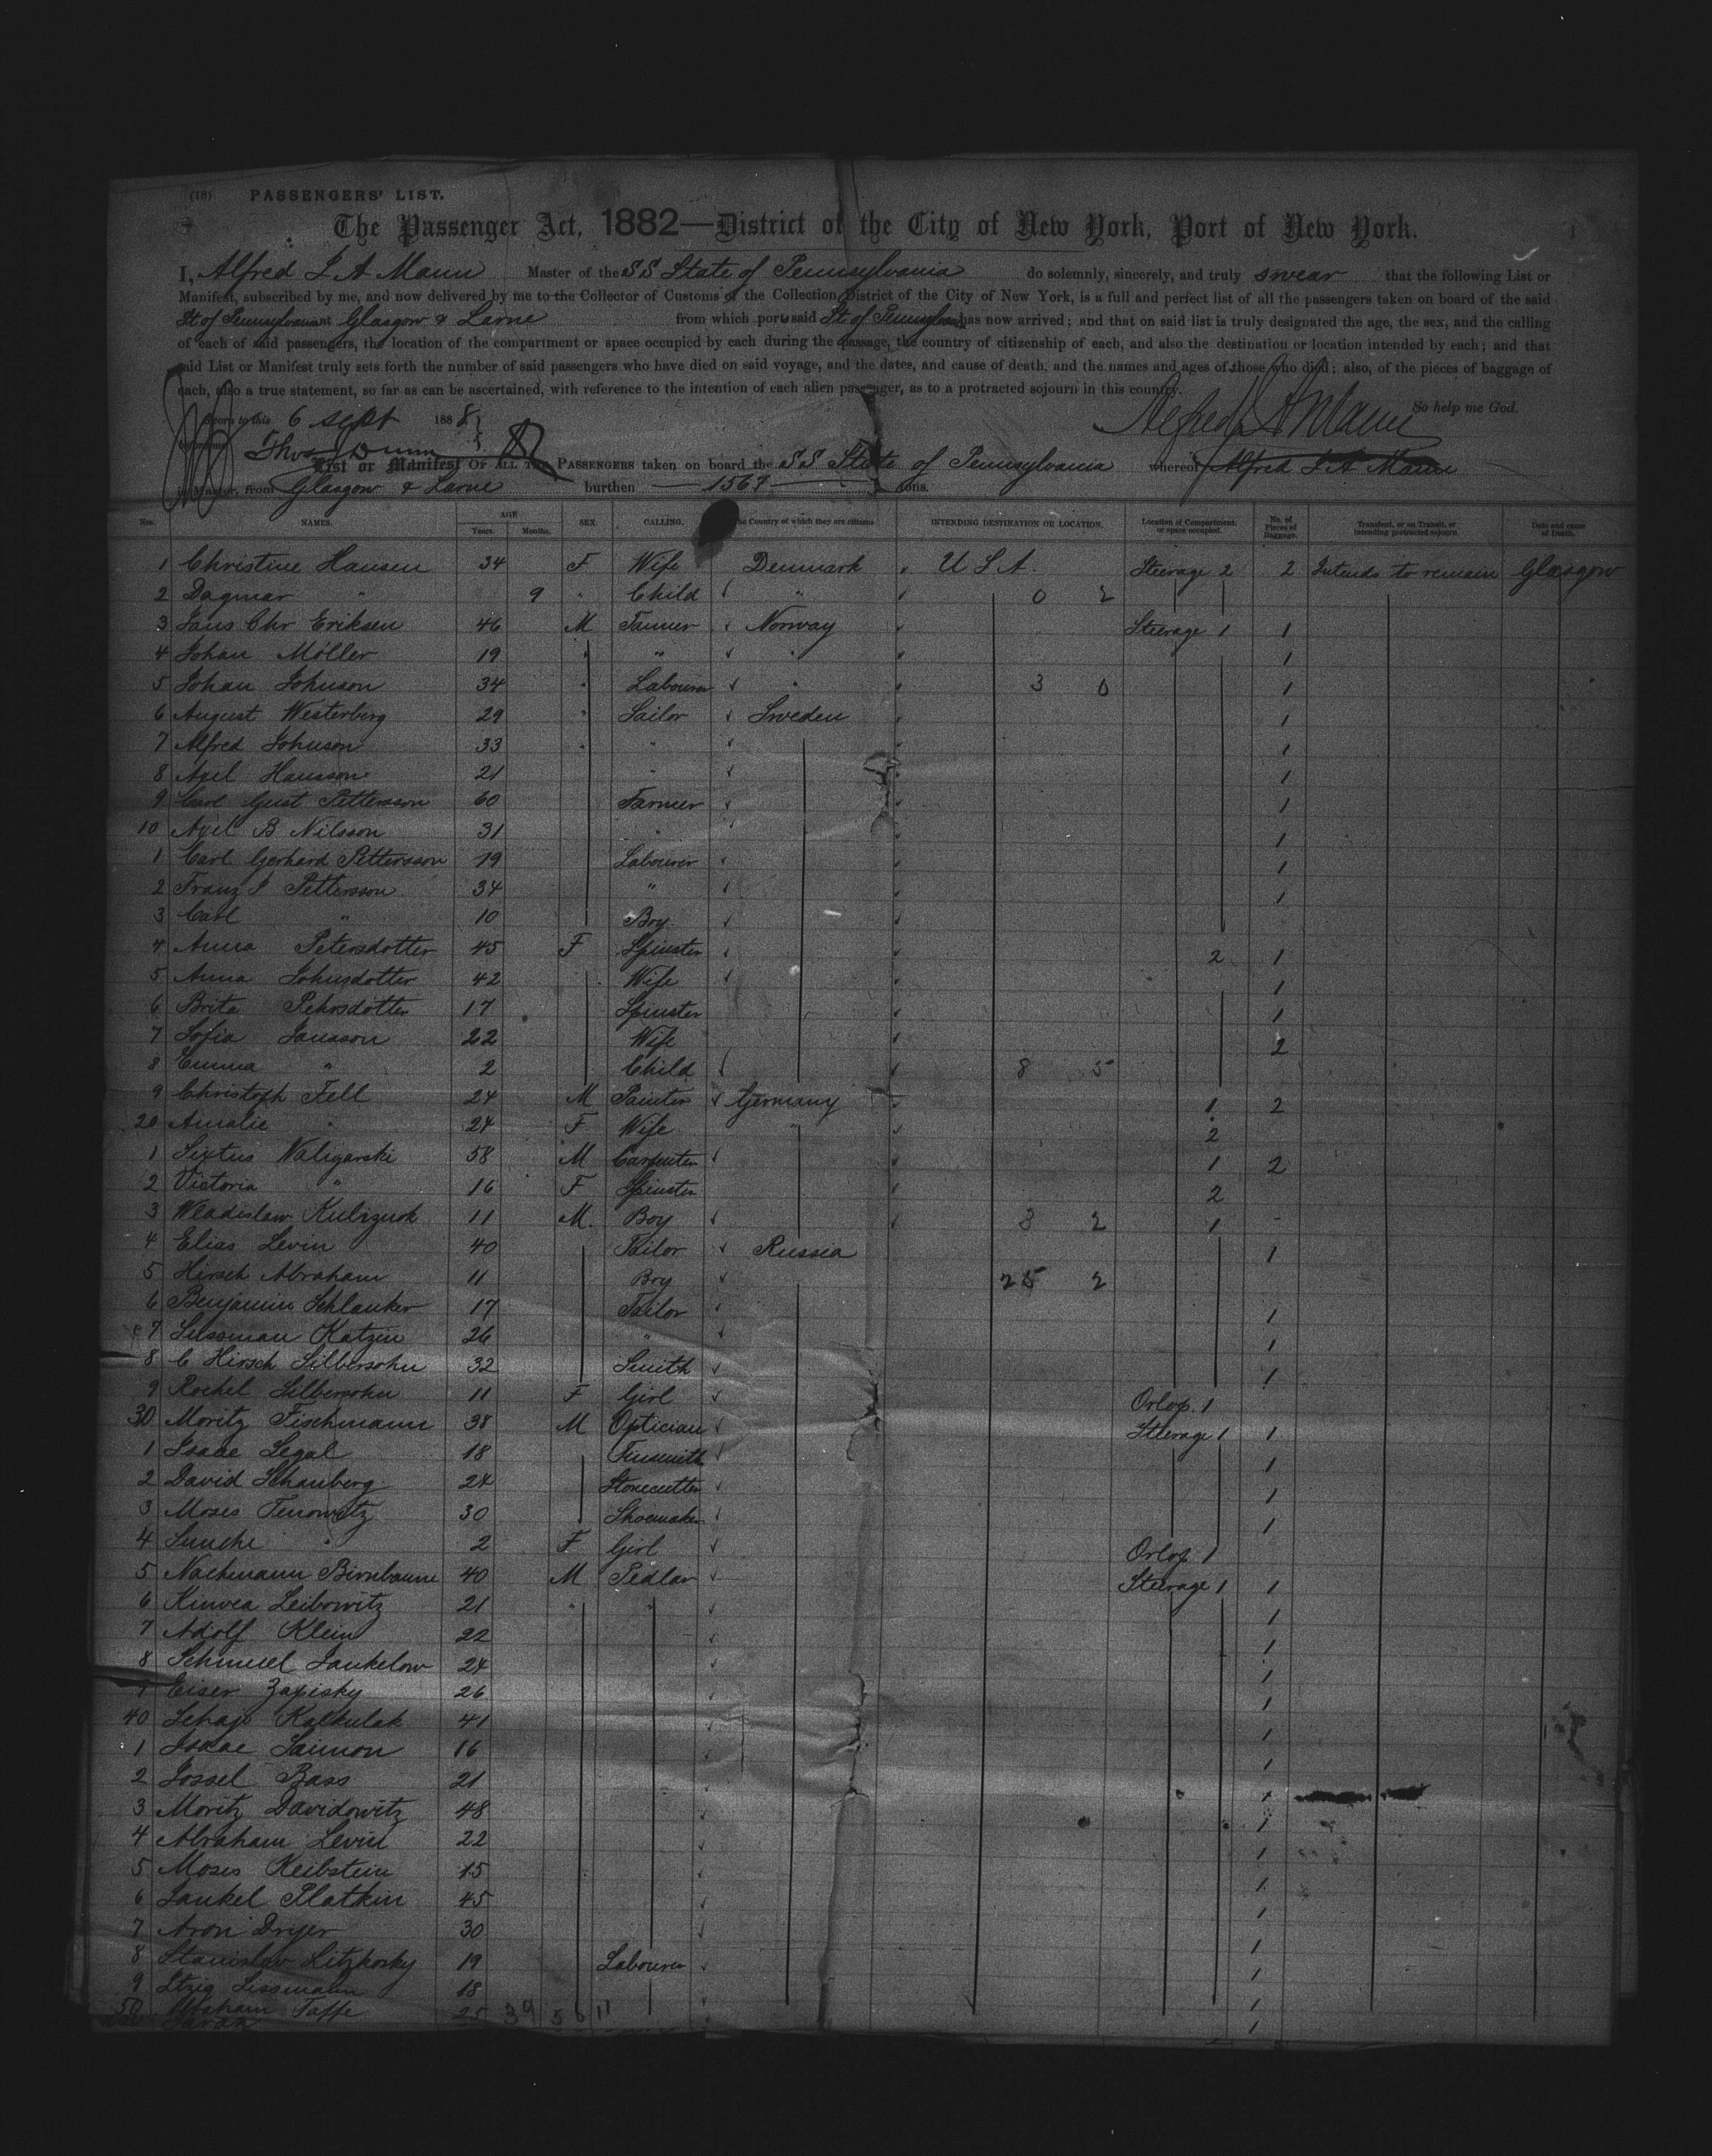 (18) PASSENGERS' LIST.
The Passenger Act, 1882—District of the City of New York, Port of New York.
I, Alfred J A Mann Master of the SS State of Pennsylvania do solemnly, sincerely, and truly swear that the following List or
Manifest, subscribed by me, and now delivered by me to the Collector of Customs of the Collection District of the City of New York, is a full and perfect list of all the passengers taken on board of the said
St of Pennsylvania at Glasgow & Larne from which port said St of Pennsylvania has now arrived; and that on said list is truly designated the age, the sex, and the calling
of each of said passengers, the location of the compartment or space occupied by each during the passage, the country of citizenship of each, and also the destination or location intended by each; and that
said List or Manifest truly sets forth the number of said passengers who have died on said voyage, and the dates, and cause of death, and the names and ages of those who died; also, of the pieces of baggage of
each, also a true statement, so far as can be ascertained, with reference to the intention of each alien passenger, as to a protracted sojourn in this country.
So help me God.
Sworn to this 6 Sept 1888
Alfred J A Mann
before me Thos J Dunn
List or Manifest OF ALL THE PASSENGERS taken on board the SS State of Pennsylvania whereof Alfred J A Mann
is Master, from Glasgow & Larne burthen 1567 tons.
Nos. NAMES. AGE Years. Months. SEX. CALLING. The Country of which they are citizens INTENDING DESTINATION OR LOCATION. Location of Compartment, or space occupied. No. of Pieces of Baggage. Transient, or in Transit, or intending protracted sojourn. Date and cause of Death.
1 Christine Hansen 34 F Wife Denmark U S A. Steerage 2 2 Intends to remain Glasgow
2 Dagmar " 9 " Child " 0 2
3 Jans Chr Eriksen 46 M Farmer Norway Steerage 1 1
4 Johan Möller 19 " " " 1
5 Johan Johnson 34 " Labourer " 3 0 1
6 August Westerberg 29 " Sailor Sweden 1
7 Alfred Johnson 33 " " 1
8 Axel Hansson 21 " 1
9 Carl Gust Pettersson 60 Farmer 1
10 Axel B Nilsson 31 " 1
1 Carl Gerhard Pettersson 19 Labourer 1
2 Franz J Pettersson 34 " 1
3 Carl " 10 Boy
4 Anna Petersdotter 45 F Spinster 2 1
5 Anna Johnsdotter 42 Wife 1
6 Brita Pehrsdotter 17 Spinster 1
7 Sofia Jansson 22 Wife 2
8 Emma " 2 Child 8 5
9 Christoph Fell 24 M Painter Germany 1 2
20 Amalie " 24 F Wife " 2
1 Sixtus Waligarski 58 M Carpenter 1 2
2 Victoria " 16 F Spinster 2
3 Wladislaw 11 M. Boy 3 2 1 -
4 Elias Levin 40 Tailor Russia 1
5 Hirsch Abraham 11 Boy 25 2
6 Benjamin Schlanker 17 Tailor 1
7 Katzin 26 " 1
8 C Hirsch Silbersohn 32 Smith 1
9 Rochel Silbersohn 11 F Girl Orlop. 1
30 Moritz Fischmann 38 M Optician Steerage 1 1
1 Isaac Segal 18 Tinsmith 1
2 David Schauberg 24 Stonecutter 1
3 Moses Tenowitz 30 Shoemaker 1
4 " 2 F Girl Orlop 1
5 Nachmann Birnbaum 40 M Pedlar Steerage 1 1
6 Leibowitz 21 " " 1
7 Adolf Klein 22 1
8 Schmuel Jankelow 24 1
9 Zapisky 26 1
40 Kalkulak 41 1
1 Isaac 16 1
2 Jossel Bass 21 1
3 Moritz Davidowitz 48 1
4 Abraham Levin 22 1
5 Moses Keibstein 15 1
6 Jankel Platkin 45 1
7 Aron Dryer 30 1
8 Stanislav Litzkosky 19 Labourer 1
9 Itzig Lissmann 18 1
50 Abraham Taffe 25 1
Sarah